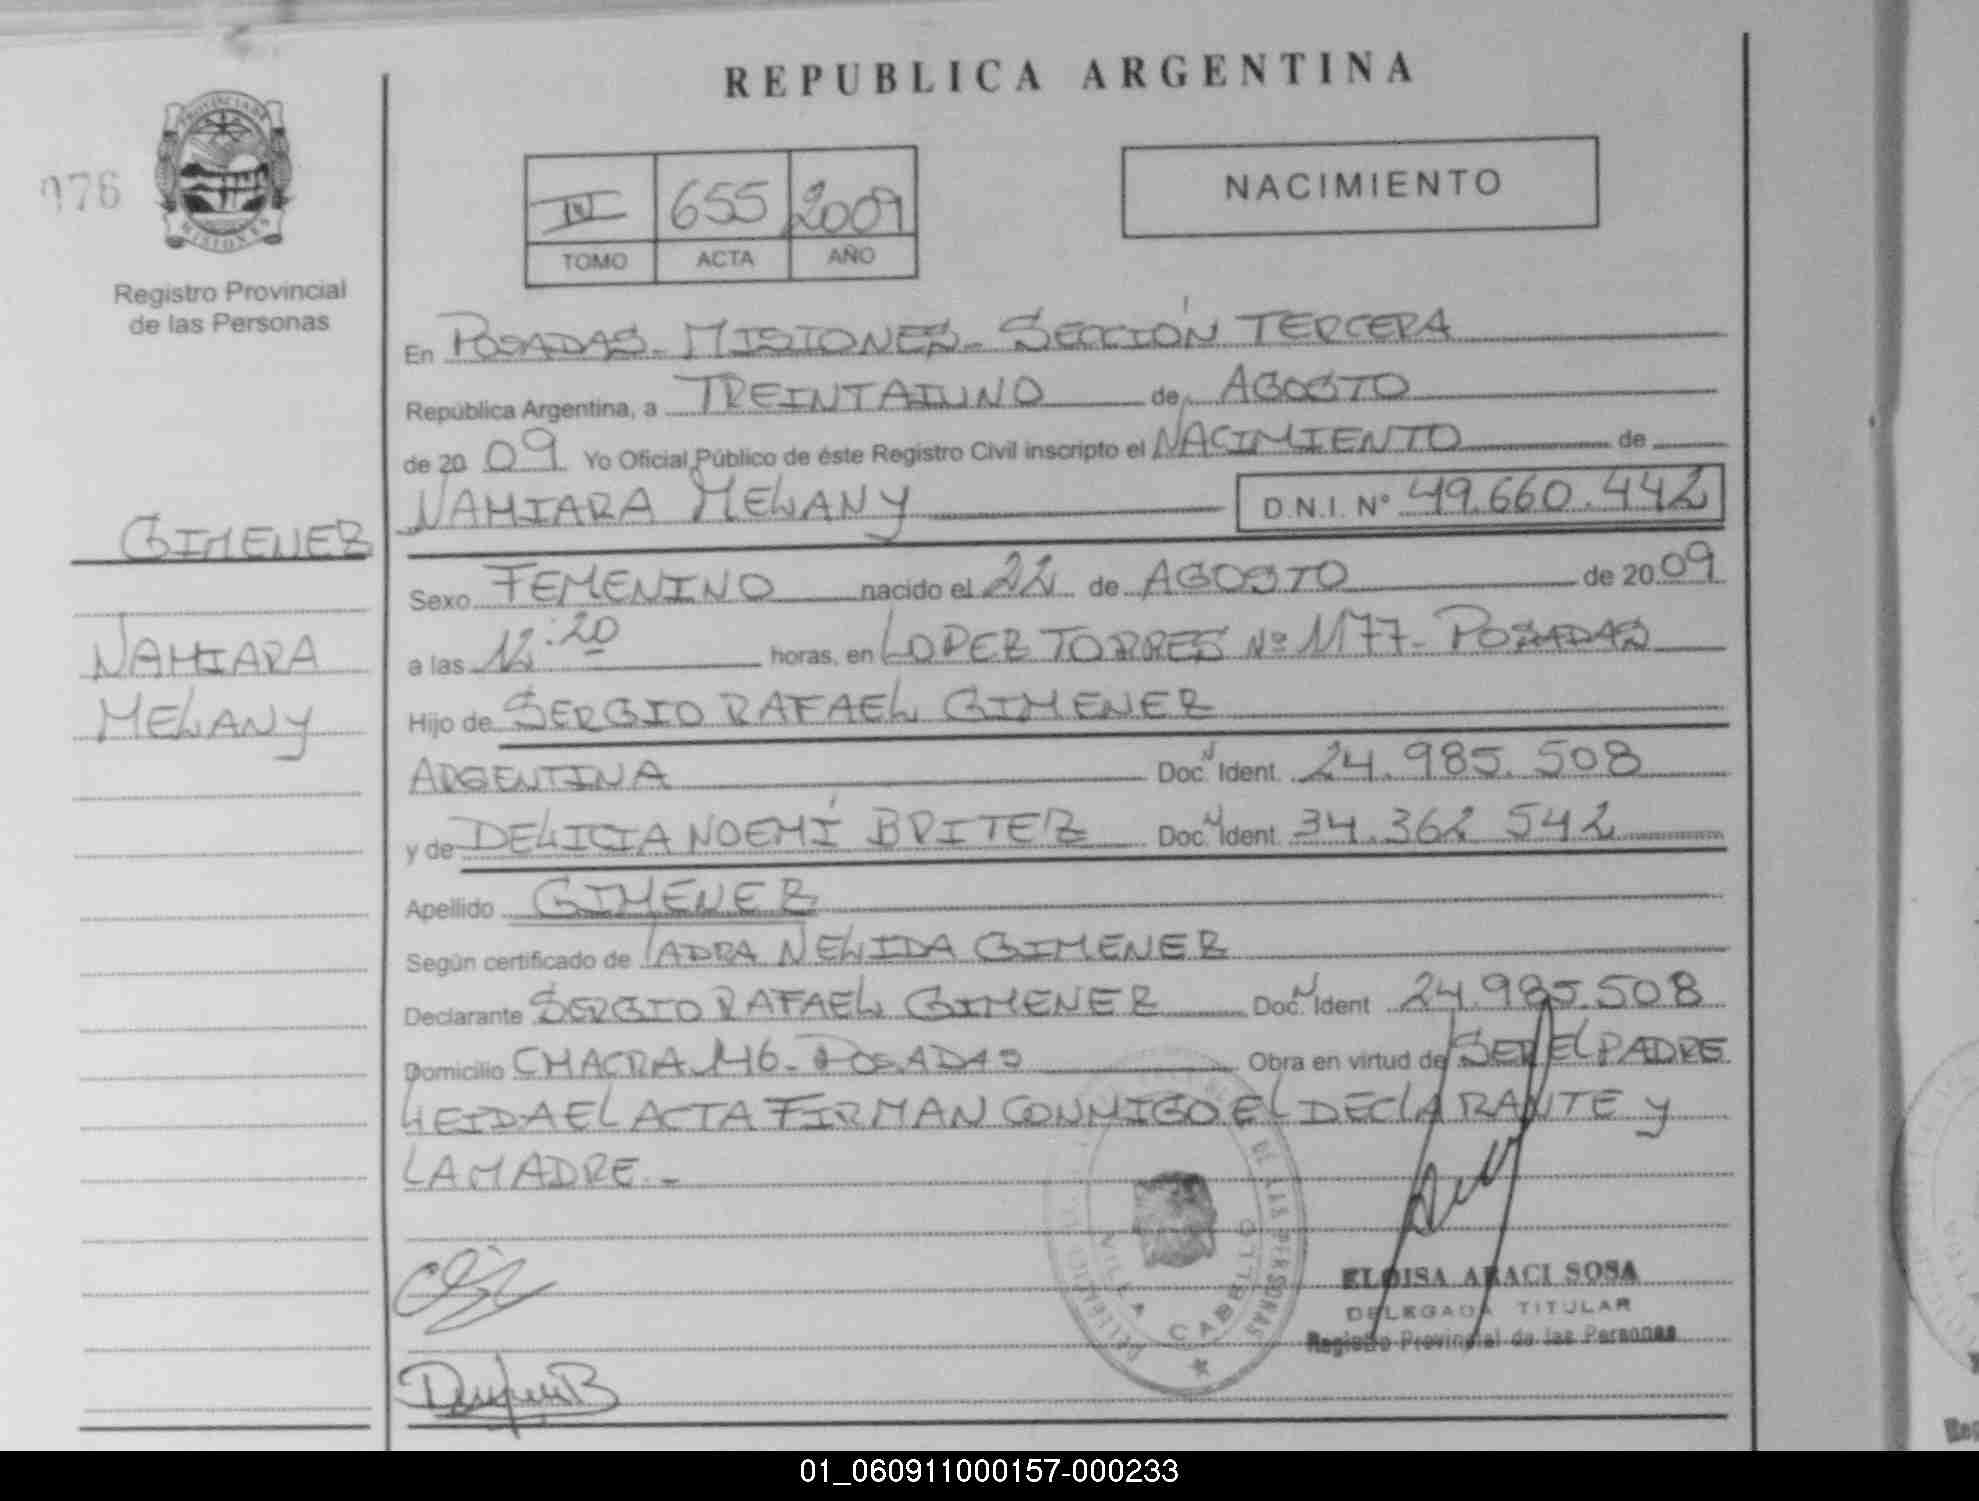 REPUBLICA ARGENTINA
PROVINCIA DE MISIONES
976
Registro Provincial
de las Personas
655 2009
TOMO ACTA AÑO
NACIMIENTO
En POSADAS - MISIONES - SECCIÓN TERCERA
República Argentina, a TREINTAIUNO de AGOSTO
de 20 09 Yo Oficial Público de éste Registro Civil inscripto el NACIMIENTO de
NAHIARA MELANY D.N.I. Nº 49.660.442
GIMENEZ
Sexo FEMENINO nacido el 22 de AGOSTO de 20 09
NAHIARA
MELANY
a las 12:20 horas, en LOPEZ TORRES Nº 1177 - POSADAS
Hijo de SERGIO RAFAEL GIMENEZ
ARGENTINA Doc. N Ident. 24.985.508
y de DELICIA NOEMÍ BRITEZ Doc. N Ident. 34.362 542
Apellido GIMENEZ
Según certificado de NELIDA GIMENEZ
Declarante SERGIO RAFAEL GIMENEZ Doc. N Ident 24.985.508
Domicilio CHACRA 146 - POSADAS Obra en virtud de SER EL PADRE
LEIDA EL ACTA FIRMAN CONMIGO EL DECLARANTE Y
LA MADRE. -
DE LAS PERSONAS
VILLA CABELLO
ELOISA ARACI SOSA
DELEGADA TITULAR
Registro Provincial de las Personas
01_060911000157-000233